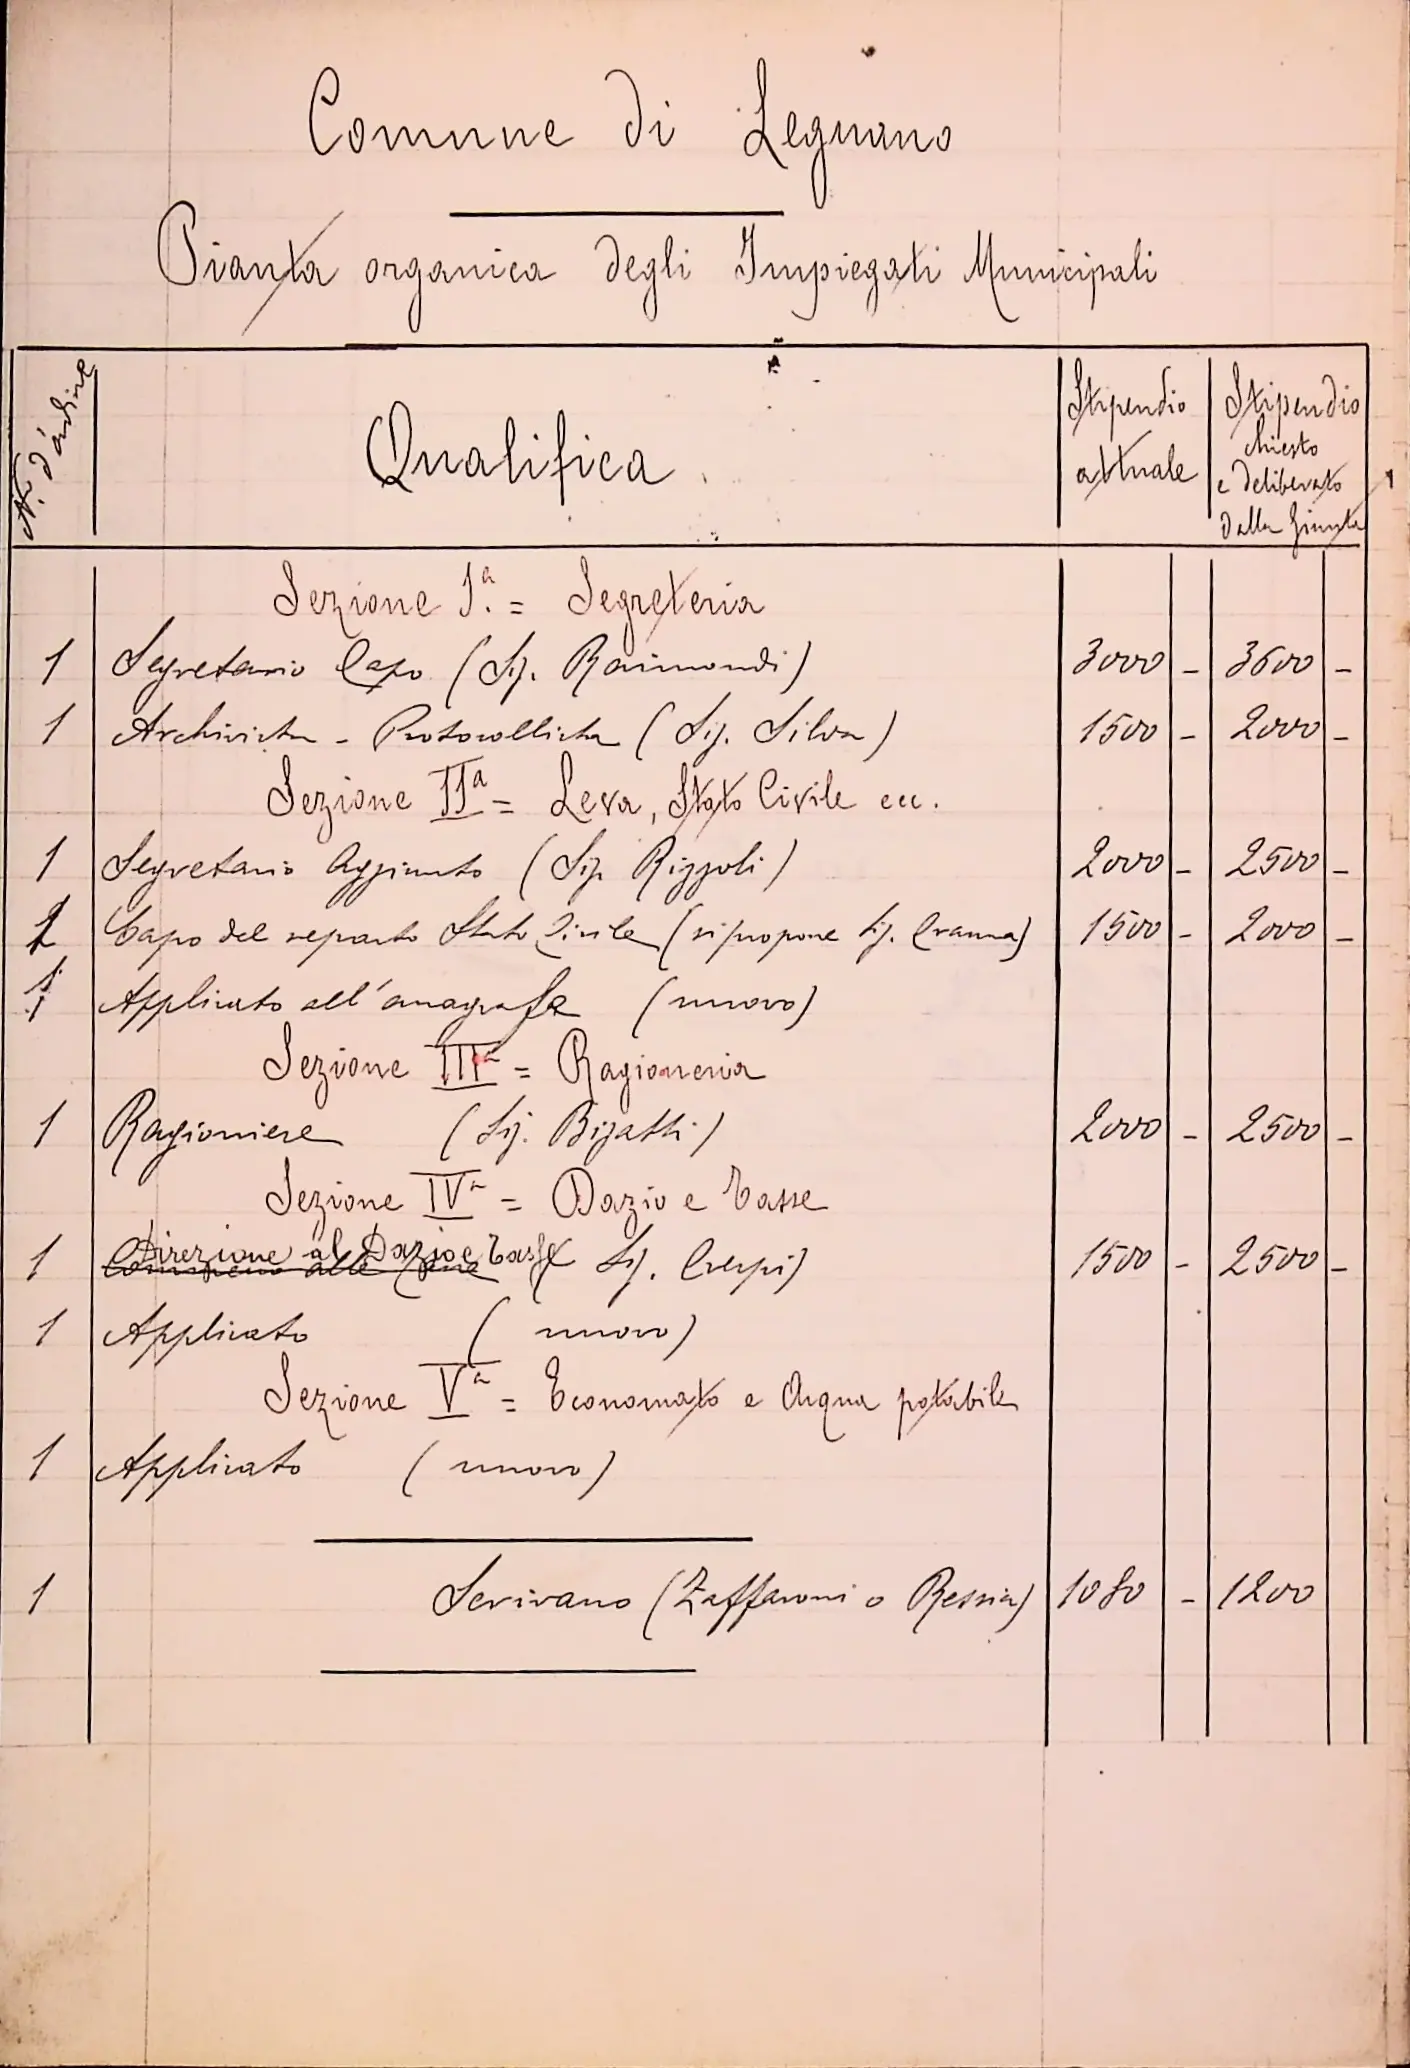 Comune di Legnano
Pianta organica degli Impiegati Municipali
N. d'ordine
Qualifica
Stipendio attuale
Stipendio chiesto e deliberato dalla Giunta
Sezione I.ª = Segreteria
1 Segretario Capo (Sig. Raimondi) 3000 - 3600 -
1 Archivista - Protocollista (Sig. Silva) 1500 - 2000 -
Sezione IIª = Leva, Stato Civile ecc.
1 Segretario Aggiunto (Sig. Rizzoli) 2000 - 2500 -
Capo del reparto Stato Civile (si propone Sig. Cranna) 1500 - 2000 -
1 Applicato all'anagrafe (nuovo)
Sezione IIIª = Ragioneria
1 Ragioniere (Sig. Bigatti) 2000 - 2500 -
Sezione IVª = Dazio e Tasse
Direzione al Dazio e Tasse
1 (Sig. Crespi) 1500 - 2500 -
1 Applicato (nuovo)
Sezione Vª = Economato e Acqua potabile
1 Applicato (nuovo)
1 Scrivano (Zaffaroni o Ressia) 1080 - 1200